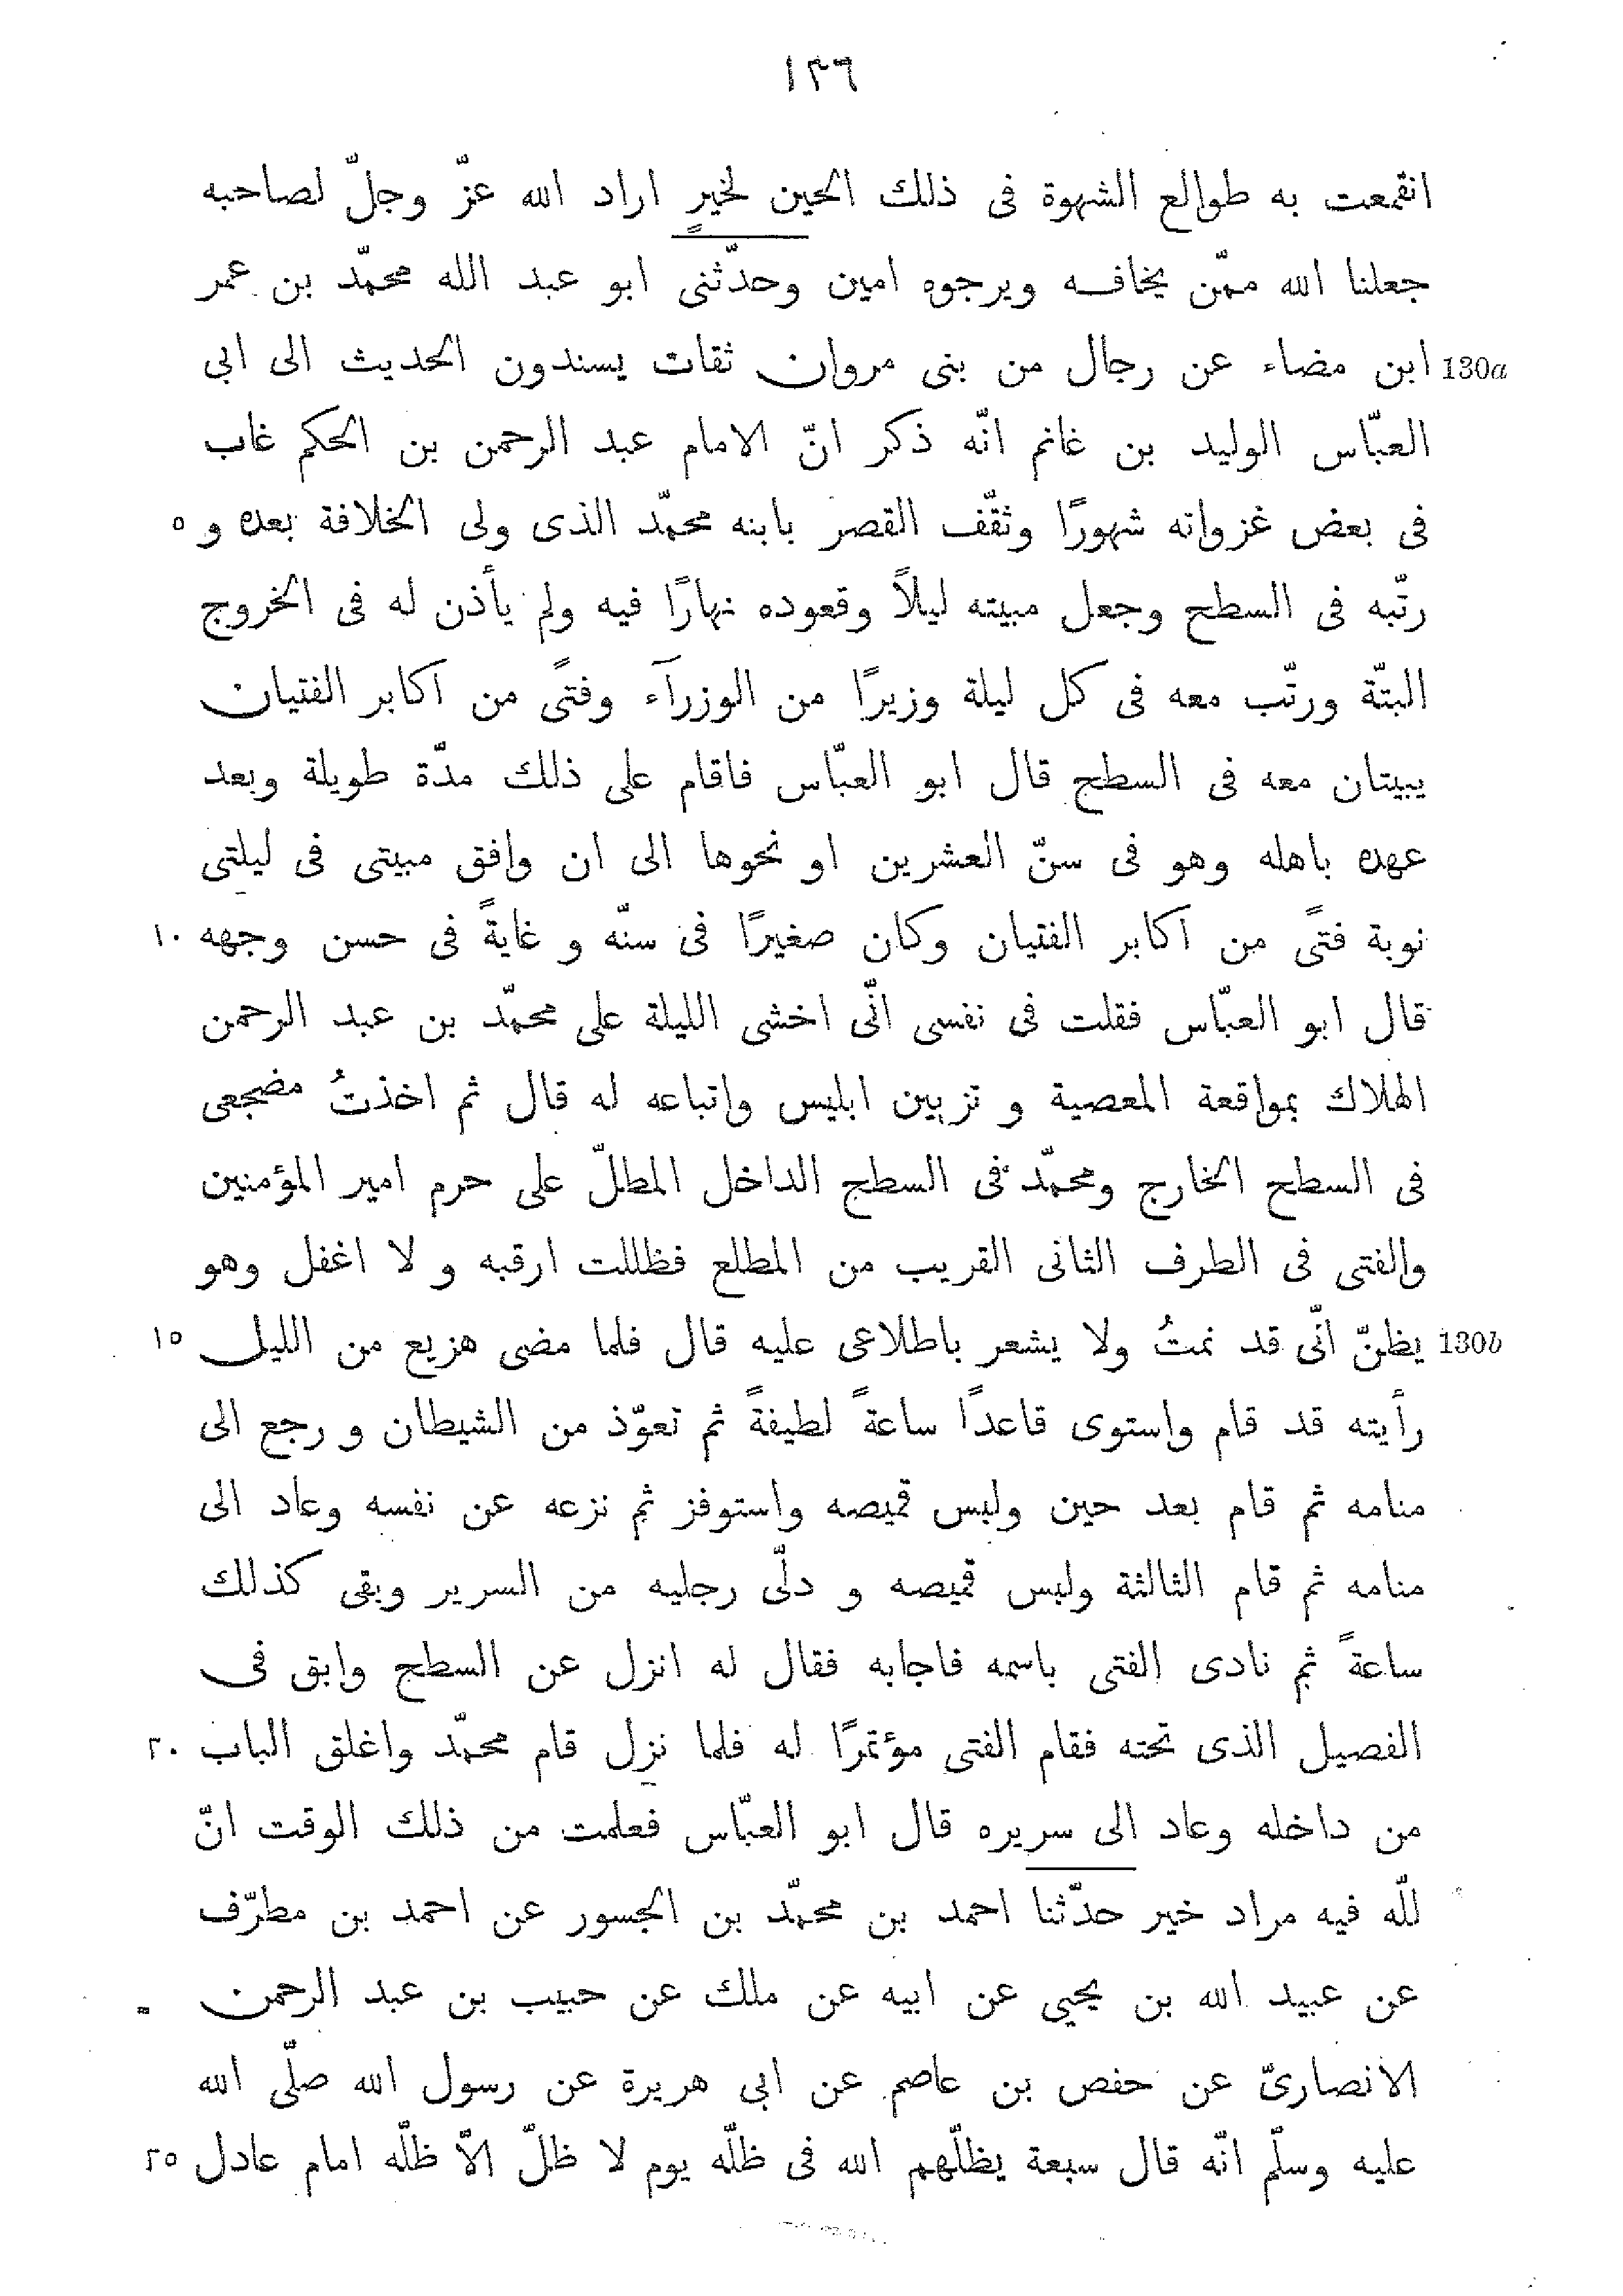 ١٣٦
انقمعت به طوالع الشهوة فى ذلك الحين لخيرٍ اراد الله عزّ وجلّ لصاحبه
جعلنا الله ممّن يخافه ويرجوه امين وحدّثنى ابو عبد الله محمّد بن عمر
130a ابن مضاء عن رجال من بنى مروان ثقات يسندون الحديث الى ابى
العبّاس الوليد بن غانم انّه ذكر انّ الامام عبد الرحمن بن الحكم غاب
فى بعض غزواته شهورًا وثقّف القصر بابنه محمّد الذى ولى الخلافة بعده و ٥
رتّبه فى السطح وجعل مبيته ليلاً وقعوده نهارًا فيه ولم يأذن له فى الخروج
البتّة ورتّب معه فى كل ليلة وزيرًا من الوزرآء وفتًى من اكابر الفتيان
يبيتان معه فى السطح قال ابو العبّاس فاقام على ذلك مدّة طويلة وبعد
عهده باهله وهو فى سنّ العشرين او نحوها الى ان وافق مبيتى فى ليلتى
نوبة فتًى من اكابر الفتيان وكان صغيرًا فى سنّه و غايةً فى حسن وجهه ١٠
قال ابو العبّاس فقلت فى نفسى انّى اخشى الليلة على محمّد بن عبد الرحمن
الهلاك بمواقعة المعصية و تزيين ابليس واتباعه له قال ثم اخذتُ مضجعى
فى السطح الخارج ومحمّد فى السطح الداخل المطلّ على حرم امير المؤمنين
والفتى فى الطرف الثانى القريب من المطلع فظللت ارقبه و لا اغفل وهو
130b يظنّ انّى قد نمتُ ولا يشعر باطلاعى عليه قال فلما مضى هزيع من الليل ١٥
رأيته قد قام واستوى قاعدًا ساعةً لطيفةً ثم تعوّذ من الشيطان و رجع الى
منامه ثم قام بعد حين ولبس قميصه واستوفز ثم نزعه عن نفسه وعاد الى
منامه ثم قام الثالثة ولبس قميصه و دلّى رجليه من السرير وبقى كذلك
ساعةً ثم نادى الفتى باسمه فاجابه فقال له انزل عن السطح وابق فى
الفصيل الذى تحته فقام الفتى مؤتمرًا له فلما نزل قام محمّد واغلق الباب ٢٠
من داخله وعاد الى سريره قال ابو العبّاس فعلمت من ذلك الوقت انّ
للّه فيه مراد خير حدّثنا احمد بن محمّد بن الجسور عن احمد بن مطرّف
عن عبيد الله بن يحيى عن ابيه عن ملك عن حبيب بن عبد الرحمن
الانصارىّ عن حفص بن عاصم عن ابى هريرة عن رسول الله صلّى الله
عليه وسلّم انّه قال سبعة يظلّهم الله فى ظلّه يوم لا ظلّ الاّ ظلّه امام عادل ٢٥